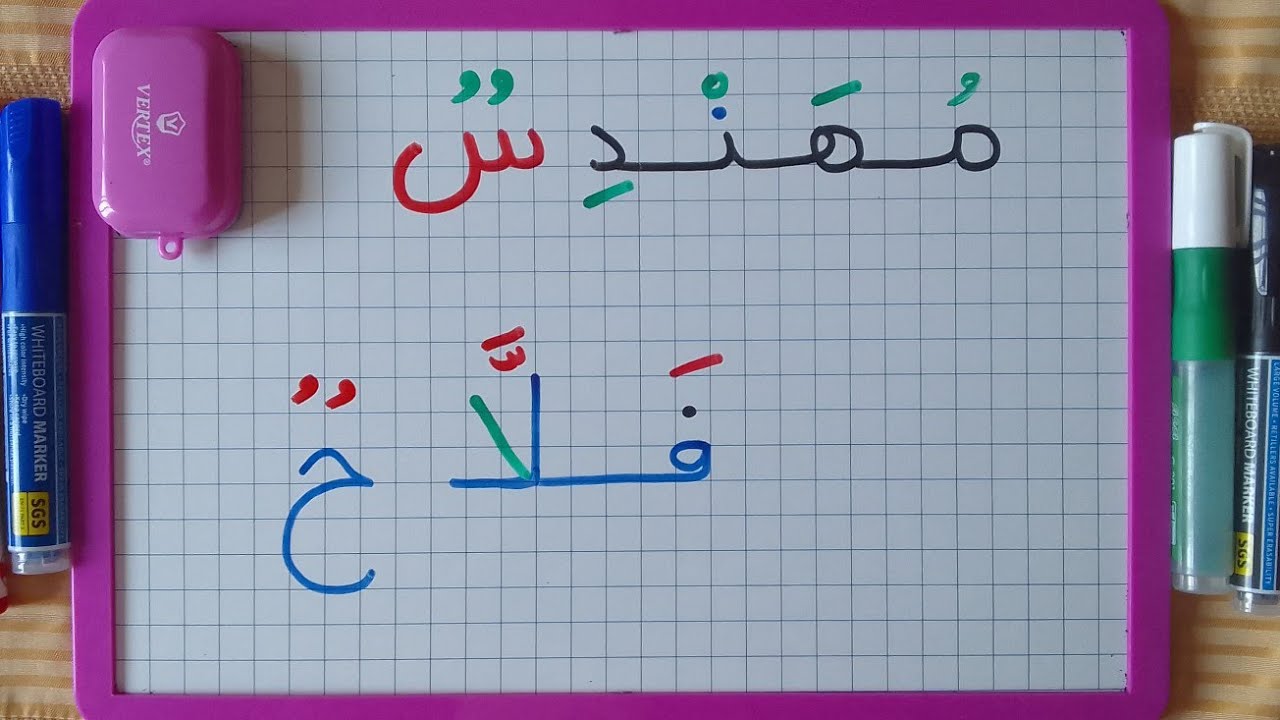 مُهَنْدِسٌ
فَلَّاحٌ
VERTEX
WHITEBOARD MARKER
SGS
WHITEBOARD MARKER
SGS